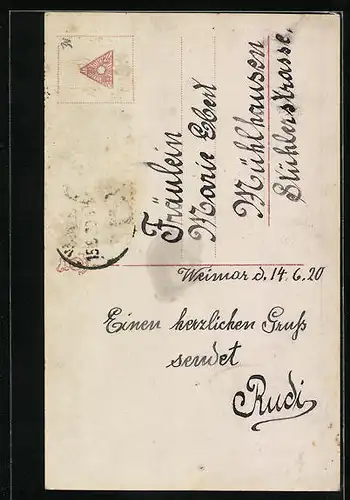 Fräulein
Marie Ebert
Mühlhausen
Weimar d. 14.6.20
Einen herzlichen Gruß
sendet
Rudi